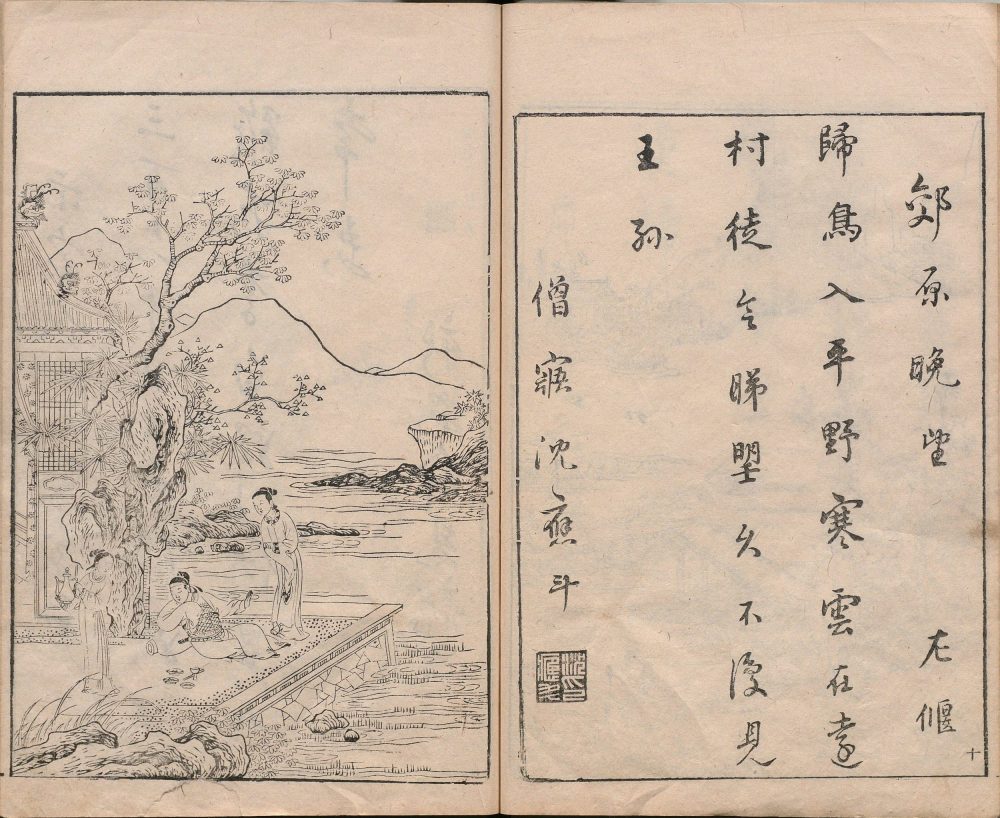 郊原晚望 左偃
歸鳥入平野寒雲在遠
村徒令睇望久不復見
王孫
僧寤沈應斗
十